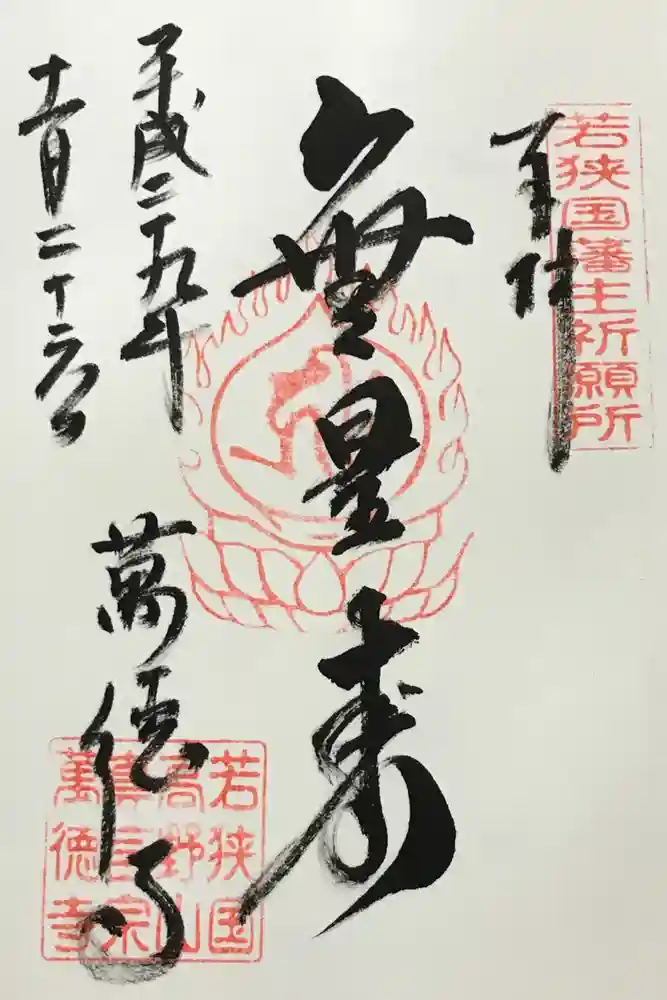 若狭国藩主祈願所
奉拝
無量寿
平成二十九年
十一月二十六日
萬徳寺
若狭国
高野山
真言宗
萬徳寺